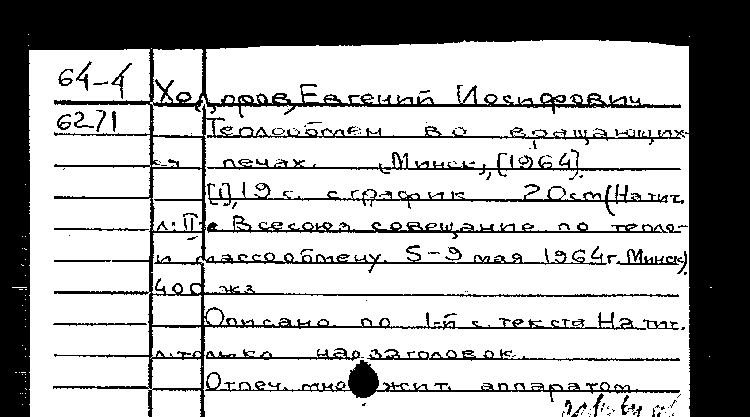 64-4
Ходоров, Евгений Иосифович
6271
Теплообмен во вращающих-
ся печах. Минск, [1964].
[1], 19 с. с график 20см (На тит.
л: II-е Всесоюз совещание по тепло-
и массообмену. 5-9 мая 1964г. Минск)
400 экз
Описано по 1-й с. текста На тит.
л. только надзаголовок.
Отпеч. множит. аппаратом